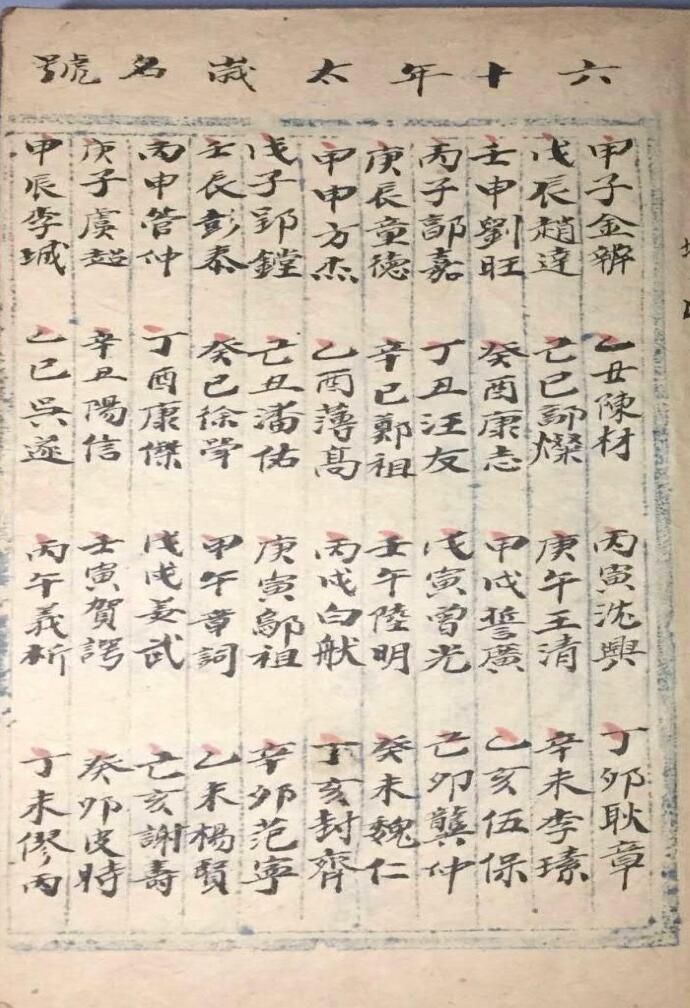 六十年太嵗名號
甲子金辦 乙丑陳材 丙寅沈興 丁夘耿章
戊辰趙達 己巳郭燦 庚午王清 辛未李
壬申劉旺 癸酉康志 甲戌誓廣 乙亥伍保
丙子郭嘉 丁丑汪友 戊寅曾光 己夘龔仲
庚辰童德 辛巳鄭祖 壬午陸明 癸未魏仁
甲申方杰 乙酉薄高 丙戌白 丁亥封齊
戊子郢鏜 己丑潘佑 庚寅鄔祖 辛夘范寧
壬辰彭泰 癸巳徐 甲午章詞 乙未楊賢
丙申管仲 丁酉康傑 戊戌姜武 己亥謝壽
庚子虞超 辛丑陽信 壬寅賀諤 癸夘皮時
甲辰李城 乙巳吳遂 丙午義析 丁未僇丙